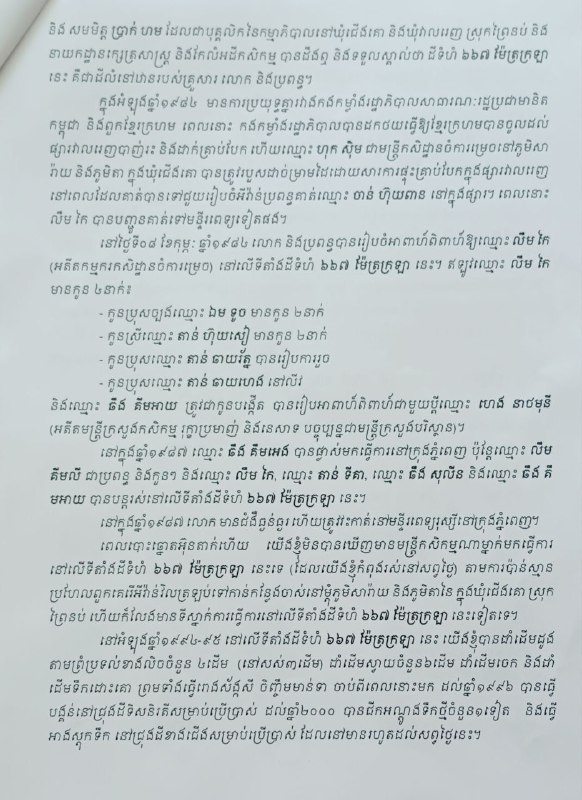 និង សមមិត្ត ប្រាក់ ហម ដែលជាបុគ្គលិកនៃកម្មាភិបាលនៅឃុំជើងគោ និងឃុំវាលរេញ ស្រុកព្រៃនប់ និង
នាយកដ្ឋានក្សេត្រសាស្ត្រ និងកែលំអដីកសិកម្ម បានដឹងឮ និងទទួលស្គាល់ថា ដីទំហំ ៦៦៧ ម៉ែត្រក្រឡា
នេះ គឺជាដីលំនៅឋានរបស់គ្រួសារ លោក និងប្រពន្ធ។
ក្នុងអំឡុងឆ្នាំ១៩៨៤ មានការប្រយុទ្ធគ្នារវាងកងកម្លាំងរដ្ឋាភិបាលសាធារណៈរដ្ឋប្រជាមានិត
កម្ពុជា និងពួកខ្មែរក្រហម ពេលនោះ កងកម្លាំងរដ្ឋាភិបាលបានដកថយធ្វើឱ្យខ្មែរក្រហមបានចូលដល់
ផ្សារវាលរេញបាញ់រះ និងដាក់គ្រាប់បែក ហើយឈ្មោះ ហុក ស៊ិម ជាមន្ត្រីកសិដ្ឋានចំការម្រេចនៅភូមិសា
រ៉ាយ និងភូមិតា ក្នុងឃុំជើងគោ បានត្រូវរបួសដាច់ម្រាមដៃដោយសារការផ្ទុះគ្រាប់បែកក្នុងផ្សារវាលរេញ
នៅពេលដែលគាត់បានទៅជួយរៀបចំអីវ៉ាន់ប្រពន្ធគាត់ឈ្មោះ ចាន់ ហ៊ុយពាន នៅក្នុងផ្សារ។ ពេលនោះ
លឹម កៃ បានបញ្ជូនគាត់ទៅមន្ទីរពេទ្យទៀតផង។
នៅថ្ងៃទី០៨ ខែកុម្ភៈ ឆ្នាំ១៩៨៤ លោក និងប្រពន្ធបានរៀបចំអាពាហ៍ពិពាហ៍ឱ្យឈ្មោះ លឹម កៃ
(អតីតកម្មករកសិដ្ឋានចំការម្រេច) នៅលើទីតាំងដីទំហំ ៦៦៧ ម៉ែត្រក្រឡា នេះ។ ឥឡូវឈ្មោះ លឹម កៃ
មានកូន ៤នាក់៖
- កូនប្រុសច្បងឈ្មោះ ឯម ទូច មានកូន ២នាក់
- កូនស្រីឈ្មោះ តាន់ ហ៊ុយសៀ មានកូន ២នាក់
- កូនប្រុសឈ្មោះ តាន់ ឆាយរ័ត្ន បានរៀបការរួច
- កូនប្រុសឈ្មោះ តាន់ ឆាយហេង នៅលីវ
និងឈ្មោះ ធឹង គីមអាយ ត្រូវជាកូនបង្កើត បានរៀបអាពាហ៍ពិពាហ៍ជាមួយប្តីឈ្មោះ ហេង នាថមុនី
(អតីតមន្ត្រីក្រសួងកសិកម្ម រុក្ខាប្រមាញ់ និងនេសាទ បច្ចុប្បន្នជាមន្ត្រីក្រសួងបរិស្ថាន)។
នៅក្នុងឆ្នាំ១៩៨៧ ឈ្មោះ ធឹង គីមអេង បានផ្លាស់មកធ្វើការនៅក្រុងភ្នំពេញ ប៉ុន្តែឈ្មោះ លឹម
គីមលី ជាប្រពន្ធ និងកូនៗ និងឈ្មោះ លឹម កៃ, ឈ្មោះ តាន់ ទីគា, ឈ្មោះ ធឹង សុលីន និងឈ្មោះ ធឹង គី
មអាយ បានបន្តរស់នៅលើទីតាំងដីទំហំ ៦៦៧ ម៉ែត្រក្រឡា នេះ។
នៅក្នុងឆ្នាំ១៩៨៧ លោក មានជំងឺធ្ងន់ធ្ងរ ហើយត្រូវវះកាត់នៅមន្ទីរពេទ្យរុស្ស៊ីនៅក្រុងភ្នំពេញ។
ពេលបោះឆ្នោតអ៊ុនតាក់ហើយ យើងខ្ញុំមិនបានឃើញមានមន្ត្រីកសិកម្មណាម្នាក់មកធ្វើការ
នៅលើទីតាំងដីទំហំ ៦៦៧ ម៉ែត្រក្រឡា នេះទេ (ដែលយើងខ្ញុំកំពុងរស់នៅសព្វថ្ងៃ) តាមការប៉ាន់ស្មាន
ប្រហែលពួកគេរើអីវ៉ាន់វិលត្រឡប់ទៅកាន់កន្លែងចាស់នៅម្តុំភូមិសារ៉ាយ និងភូមិតានៃ ក្នុងឃុំជើងគោ ស្រុក
ព្រៃនប់ ហើយក៏លែងមានទីស្នាក់ការធ្វើការនៅលើទីតាំងដីទំហំ ៦៦៧ ម៉ែត្រក្រឡា នេះទៀតទេ។
នៅអំឡុងឆ្នាំ១៩៩៤-៩៥ នៅលើទីតាំងដីទំហំ ៦៦៧ ម៉ែត្រក្រឡា នេះ យើងខ្ញុំបានដាំដើមដូង
តាមព្រំប្រទល់ខាងលិចចំនួន ៤ដើម (នៅសល់៣ដើម) ដាំដើមស្វាយចំនួន៦ដើម ដាំដើមចេក និងដាំ
ដើមទឹកដោះគោ ព្រមទាំងធ្វើរោងស័ង្កសី ចិញ្ចឹមមាន់ទា ចាប់ពីពេលនោះមក ដល់ឆ្នាំ១៩៩៦ បានធ្វើ
បង្គន់នៅជ្រុងដីទិសនិរតីសម្រាប់ប្រើប្រាស់ ដល់ឆ្នាំ២០០០ បានជីកអណ្តូងទឹកថ្មីចំនួន១ទៀត និងធ្វើ
អាងស្តុកទឹក នៅជ្រុងដីខាងជើងសម្រាប់ប្រើប្រាស់ ដែលនៅមានរហូតដល់សព្វថ្ងៃនេះ។